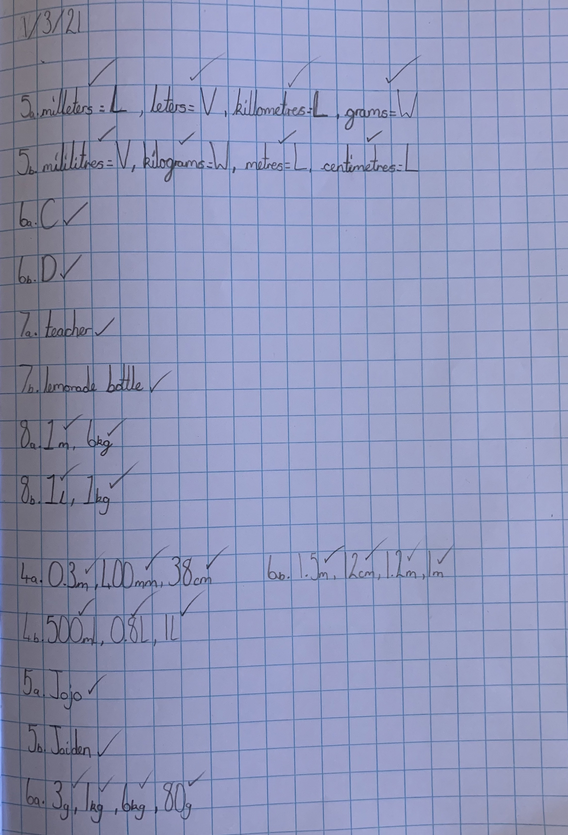 1/3/21
5a. milleters = L, leters = V, killometres = L, grams = W
5b. mililitres = V, kilograms = W, metres = L, centimetres = L
6a. C ✓
6b. D ✓
7a. teacher ✓
7b. lemonade bottle ✓
8a. 1m, 6kg
8b. 1L, 1kg
4a. 0.3m, 400mm, 38cm
6b. 1.5m, 12cm, 1.2m, 1m
4b. 500ml, 0.8L, 1L
5a. Jojo ✓
5b. Jaiden ✓
6a. 3g, 1kg, 6kg, 80g